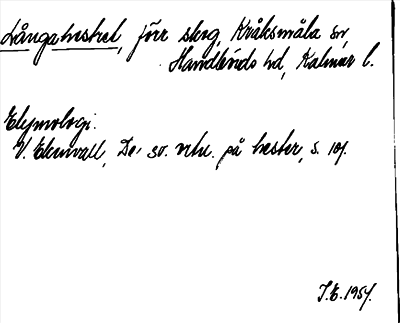 Långahestret, förr skog, Kråksmåla sn,
Handbörds hd, Kalmar l.
Etymologi.
V. Ekenvall, De sv. nth. på hester, s. 101.
J.E. 1957.